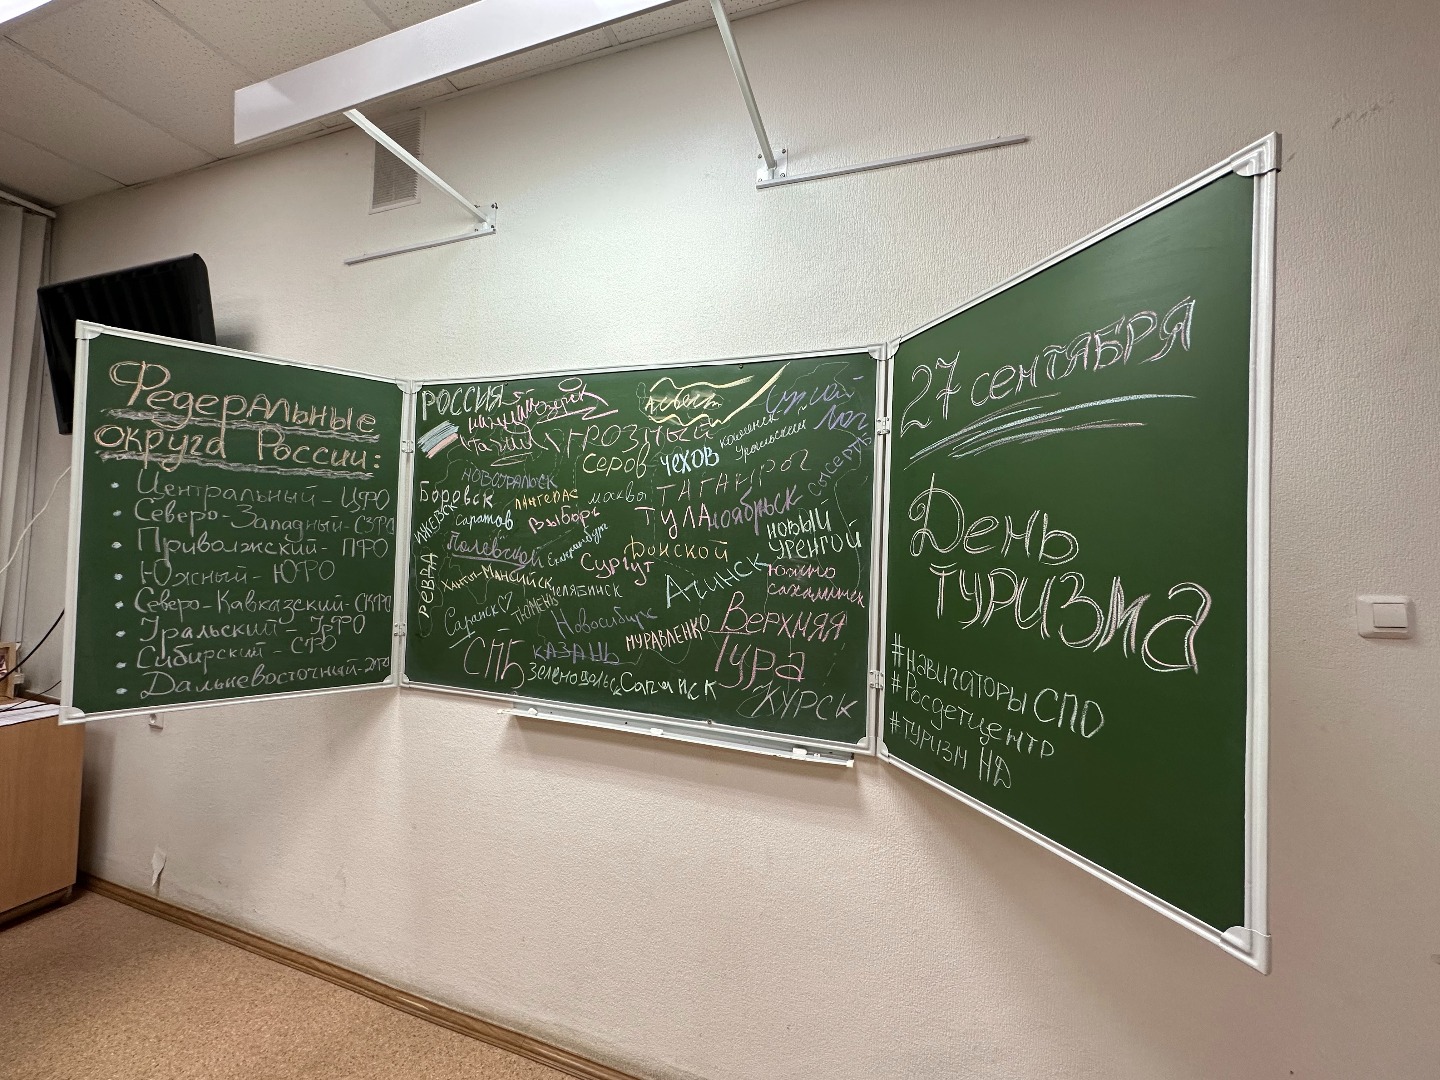 Федеральные
округа России:
• Центральный - ЦФО
• Северо-Западный - СЗФО
• Приволжский - ПФО
• Южный - ЮФО
• Северо-Кавказский - СКФО
• Уральский - УФО
• Сибирский - СФО
• Дальневосточный - ДФО
РОССИЯ
Нижний
Тагил
Озёрск
Асбест
Сухой
Лог
ГРОЗНЫЙ
Каменск
Уральский
Серов
ЧЕХОВ
Сысерть
НОВОУРАЛЬСК
ТАГАНРОГ
Боровск
Лангепас
Москва
ИЖЕВСК
Саратов
Выборг
ТУЛА
Ноябрьск
НОВЫЙ
УРЕНГОЙ
Полевской
Екатеринбург
Донской
РЕВДА
Ханты-Мансийск
Сургут
Ачинск
Южно
Сахалинск
Челябинск
Саранск
ТЮМЕНЬ
Новосибирск
МУРАВЛЕНКО
Верхняя
Тура
СПБ
КАЗАНЬ
Зеленодольск
КУРСК
27 сентября
День
туризма
#Навигаторы СПО
#Росдетцентр
#туризм НД